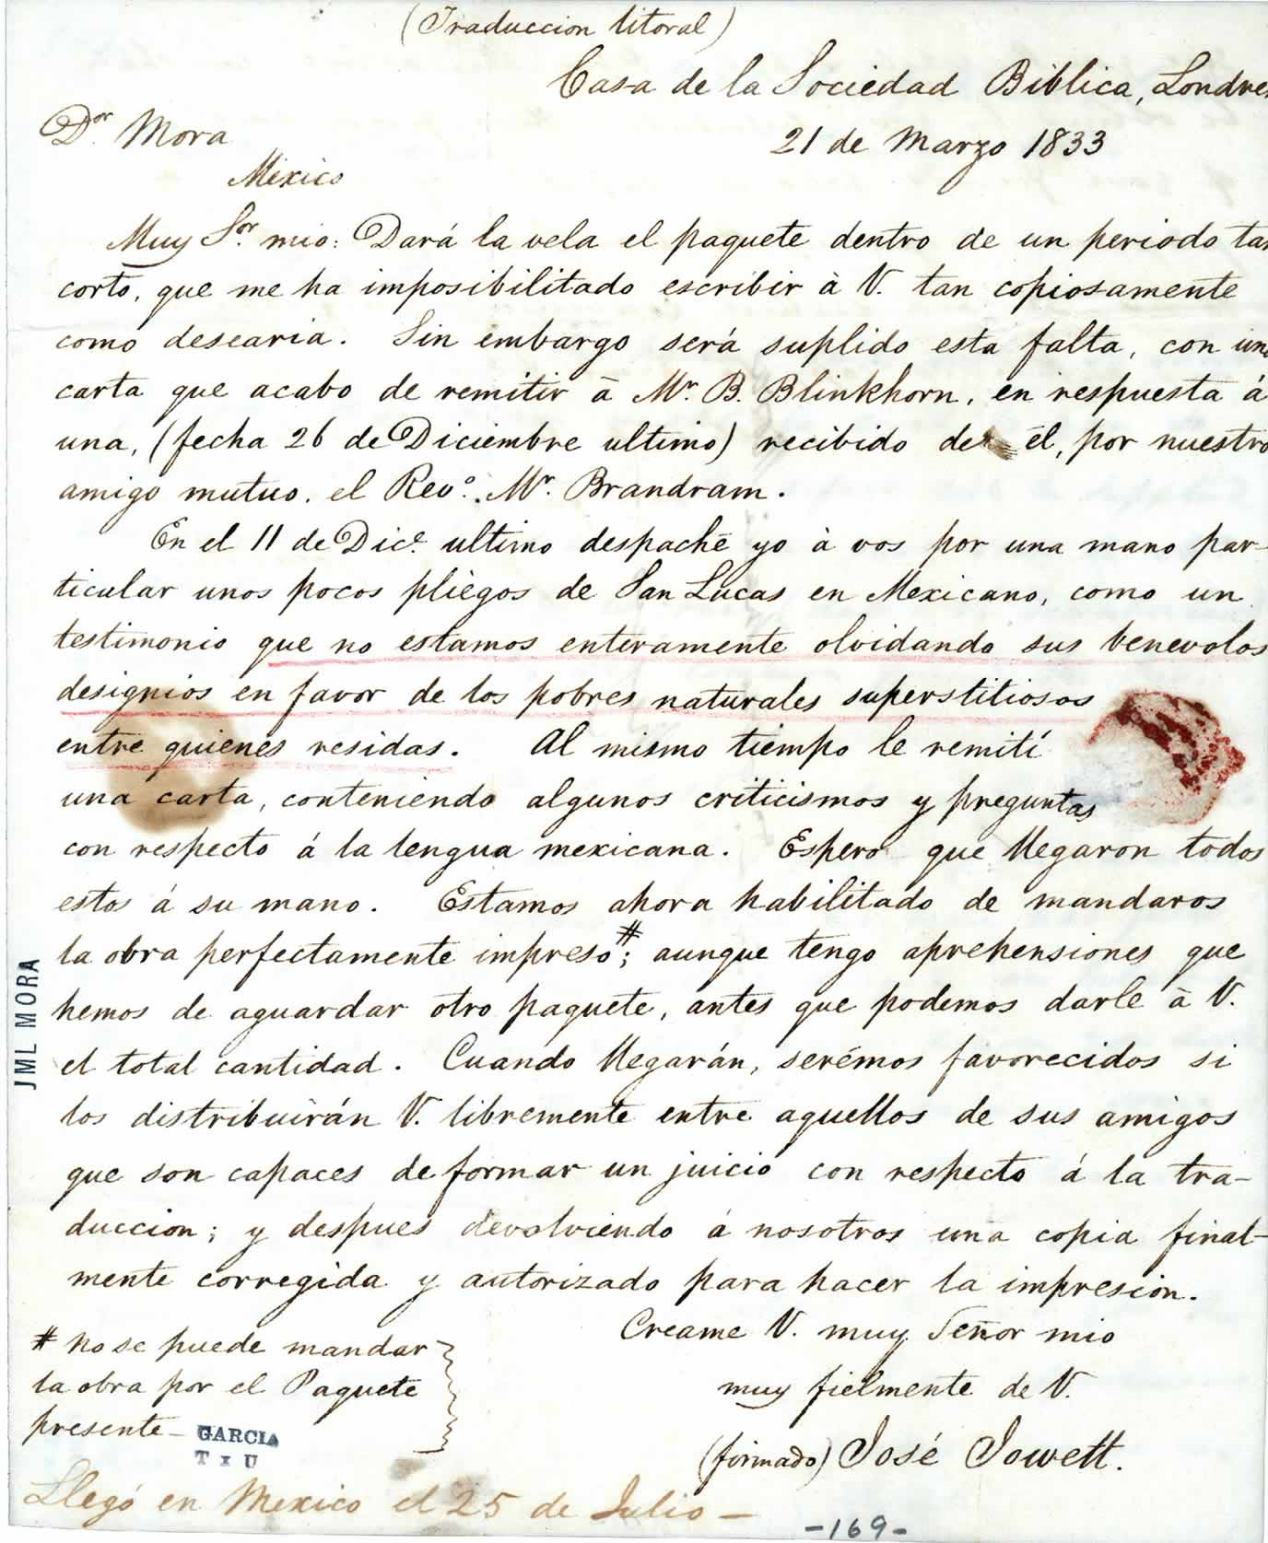 (Traduccion litoral)
Casa de la Sociedad Biblica, Londres
21 de Marzo 1833
Dor. Mora
Mexico
Muy Sor. mio: Dará la vela el paquete dentro de un periodo tan
corto, que me ha imposibilitado escribir à V. tan copiosamente
como desearia. Sin embargo será suplido esta falta, con una
carta que acabo de remitir à Mr. B. Blinkhorn, en respuesta á
una, (fecha 26 de Diciembre ultimo) recibido de él, por nuestro
amigo mutuo, el Revo. Mr. Brandram.
En el 11 de Dice. ultimo despaché yo à vos por una mano par-
ticular unos pocos pliegos de San Lucas en Mexicano, como un
testimonio que no estamos enteramente olvidando sus benevolos
designios en favor de los pobres naturales superstitiosos
entre quienes residas. Al mismo tiempo le remití
una carta, conteniendo algunos criticismos y preguntas
con respecto á la lengua mexicana. Espero que llegaron todos
estos á su mano. Estamos ahora habilitado de mandaros
la obra perfectamente impreso#; aunque tengo aprehensiones que
hemos de aguardar otro paquete, antes que podemos darle à V.
el total cantidad. Cuando llegarán, serémos favorecidos si
los distribuirán V. libremente entre aquellos de sus amigos
que son capaces de formar un juicio con respecto á la tra-
duccion; y despues devolviendo á nosotros una copia final-
mente corregida y autorizado para hacer la impresion.
Creame V. muy Señor mio
muy fielmente de V.
(firmado) José Jowett.
# no se puede mandar
la obra por el Paquete
presente—
GARCIA
Llegó en Mexico el 25 de Julio —
-169-
JML MORA